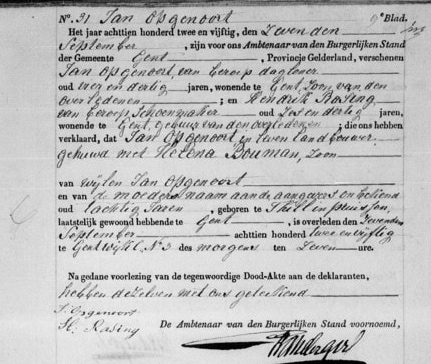 No. 31 Jan Opgenoort 9e Blad.
Het jaar achttien honderd twee en vijftig, den Zevenden
September, zijn voor ons Ambtenaar van den Burgerlijken Stand
der Gemeente Gent, Provincie Gelderland, verschenen
Jan Opgenoort van beroep daglooner
oud vier en dertig jaren, wonende te Gent, Zoon van den
overledenen; en Hendrik
van beroep Schoenmaker oud en dertig jaren,
wonende te Gent, gebuur van den overledenen; die ons hebben
verklaard, dat Jan Opgenoort in leven landbouwer
gehuwd met Helena Bouman, Zoon
van wijlen Jan Opgenoort
en van de moeders naam aan de aangevers onbekend
oud tachtig Jaren, geboren te
laatstelijk gewoond hebbende te Gent, is overleden den Zevenden
September achttien honderd twee en vijftig
te Gent wijk C No 3 des morgens ten Zeven ure.
Na gedane voorlezing van de tegenwoordige Dood-Akte aan de deklaranten,
hebben dezelven met ons geteekend
J. Opgenoort
H.
De Ambtenaar van den Burgerlijken Stand voornoemd,